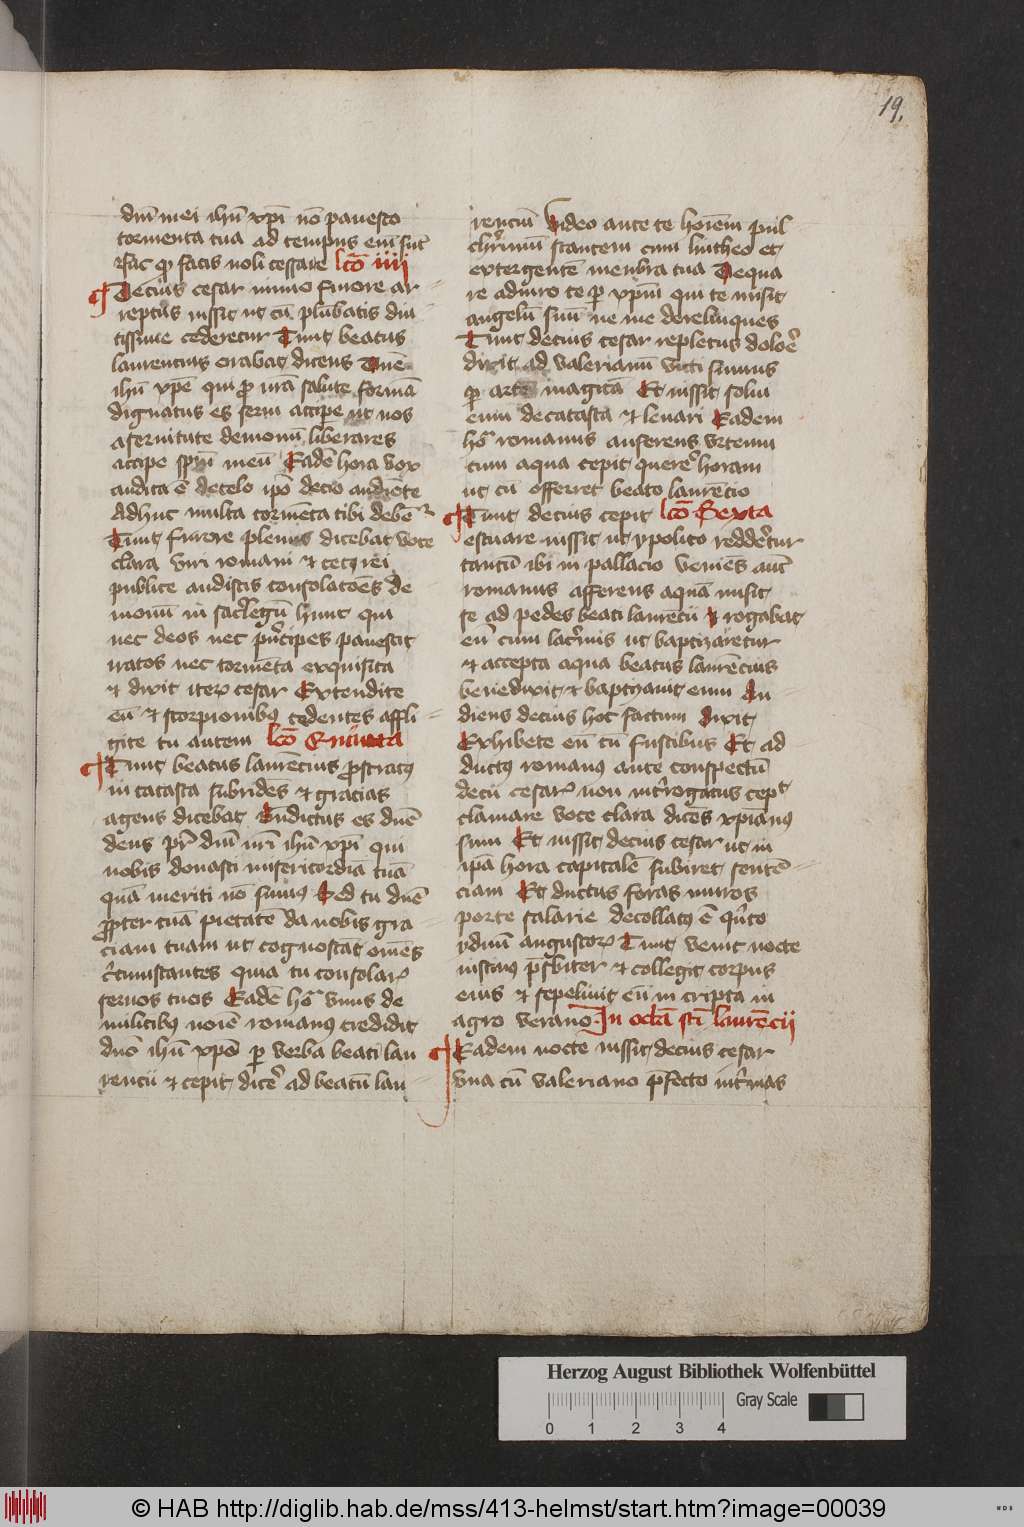 19.
dnī mei ihū xpī nō pauesco
tormenta tua ad tempus em̄ sūt
fac qḡ facis noli cessare lcō iiii
Decius cesar nimio furore ar
reptus iussit ut cū plūbatis diu
tissime cederetur Tunc beatus
laurencius orabat dicens Dnē
ihū xpē qui ꝓ nrā salute formā
dignatus es serui accipe ut nos
a seruitute demonū liberares
accipe spm̄ meū Eadē hora vox
audita ē de celo ipō decio audiēte
Adhuc multa tormēta tibi debēr
Tunc furore plenus dicebat voce
clara viri romani et
publice audistis consolacōes de
monū in sacrlegū hunc qui
nec deos nec pncipes pauescit
iratos nec tormēta exquisita
et dixit iterꝝ cesar Extendite
eū et scorpionibꝯ cedentes affli
gite tu autem lcō Quinta
Tunc beatus laurēncius ꝓstratꝯ
in catasta subridēs et gracias
agens dicebat Bn̄dictus es dnē
deus pr̄ dnī nrī ihū xpī qui
nobis donasti misericordiā tuā
quā meriti nō sumꝯ Sed tu dnē
ꝓpter tuā pietatē da nobis gra
ciam tuam ut cognoscāt om̄es
cͥcumstantes quia tu consolarꝭ
seruos tuos Eadē hō vnus de
militibꝯ noīe romanꝯ credidit
dnō ihū xpō ꝑ verba beati lau
rencii et cepit dicē ad beatū lau
rencium Video ante te hoīem pul
chrīmū stantem cum lintheo et
extergentē menbra tua Vequa
re adiuro te ꝑ xpm̄ qui te misit
angelū suū ne me derelinques
Tunc decius cesar repletus dolōe
dixit ad valerianū victi sumus
ꝑ artē magicā Et iussit solui
eum de catasta et leuari Eadem
hō romanus auferens vrceum
cum aqua cepit querē horam
ut cū offerret beato laurēcio
Tunc decius cepit lcō Sexta
estuare iussit ut ypolito reddētur
tantū ibi in pallacio veniēs aut̄
romanus afferens aquā misit
se ad pedes beati laurēcii et rogabat
eū cum lacrīmis ut baptizaretur
et accepta aqua beatus laurēncius
benedixit et baptizauit eum Au
diens decius hoc factum dixit
Exhibete eū cū fustibus Et ad
ductꝯ romanꝯ ante conspectū
decii cesarꝭ non int̄rogatus cepit
clamare voce clara dicēs xpianꝯ
sum Et iussit decius cesar ut in
ipā hora capitalē subiret sentē
ciam Et ductus foras muros
porte salarie decollatꝯ ē qͥnto
ydꝯ augustorꝝ Tunc venit nocte
iustinꝯ pr̄sbiter et collegit corpus
eius et sepeliuit eū in cripta in
agro verano In octā sctī laurēcii
Eadem nocte iussit decius cesar
vna cū valeriano p̄fecto int̄ mas
Herzog August Bibliothek Wolfenbüttel
Gray Scale
0 1 2 3 4
© HAB http://diglib.hab.de/mss/413-helmst/start.htm?image=00039